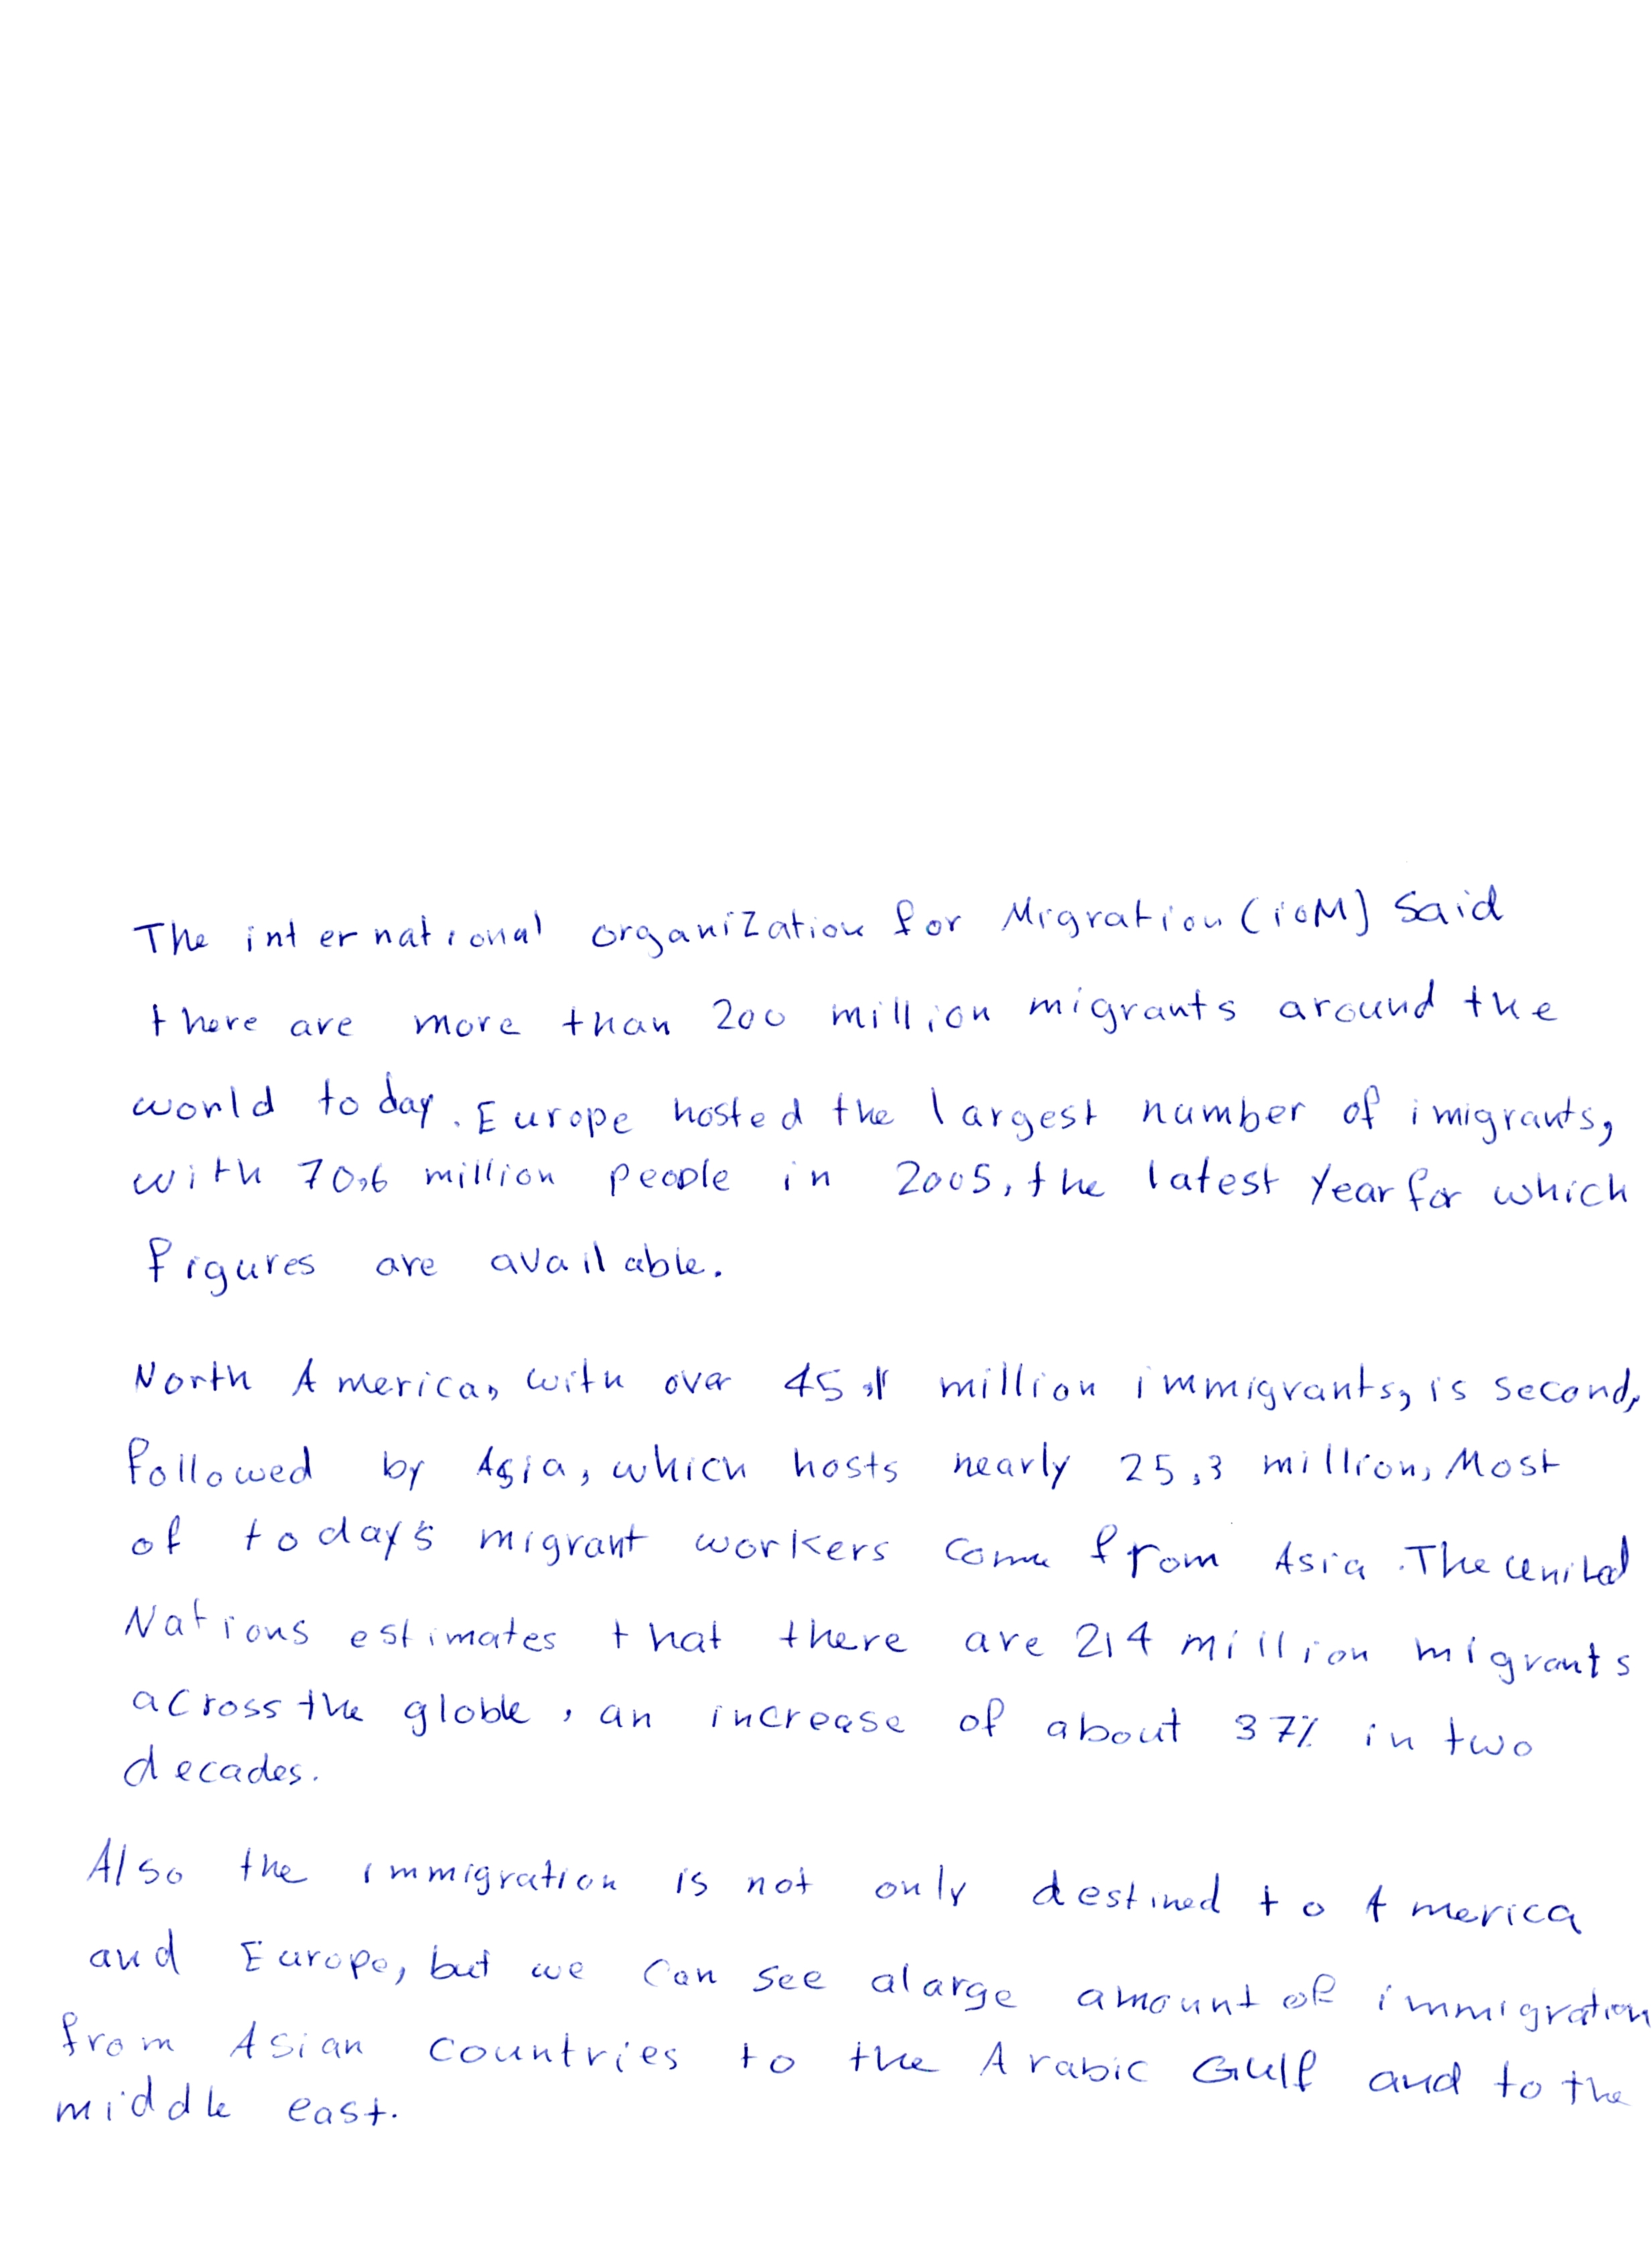 The international organization for Migration (ioM) Said
there are more than 200 million migrants around the
world today. Europe hosted the largest number of imigrants,
with 70,6 million people in 2005, the latest year for which
figures are available.
North America, with over 45,1 million immigrants, is second,
followed by Asia, which hosts nearly 25,3 million, Most
of today's migrant workers come from Asia. The united
Nations estimates that there are 214 million migrants
across the globle, an increase of about 37% in two
decades.
Also the immigration is not only destined to America
and Europe, but we can see alarge amount of immigration
from Asian countries to the Arabic Gulf and to the
middle east.